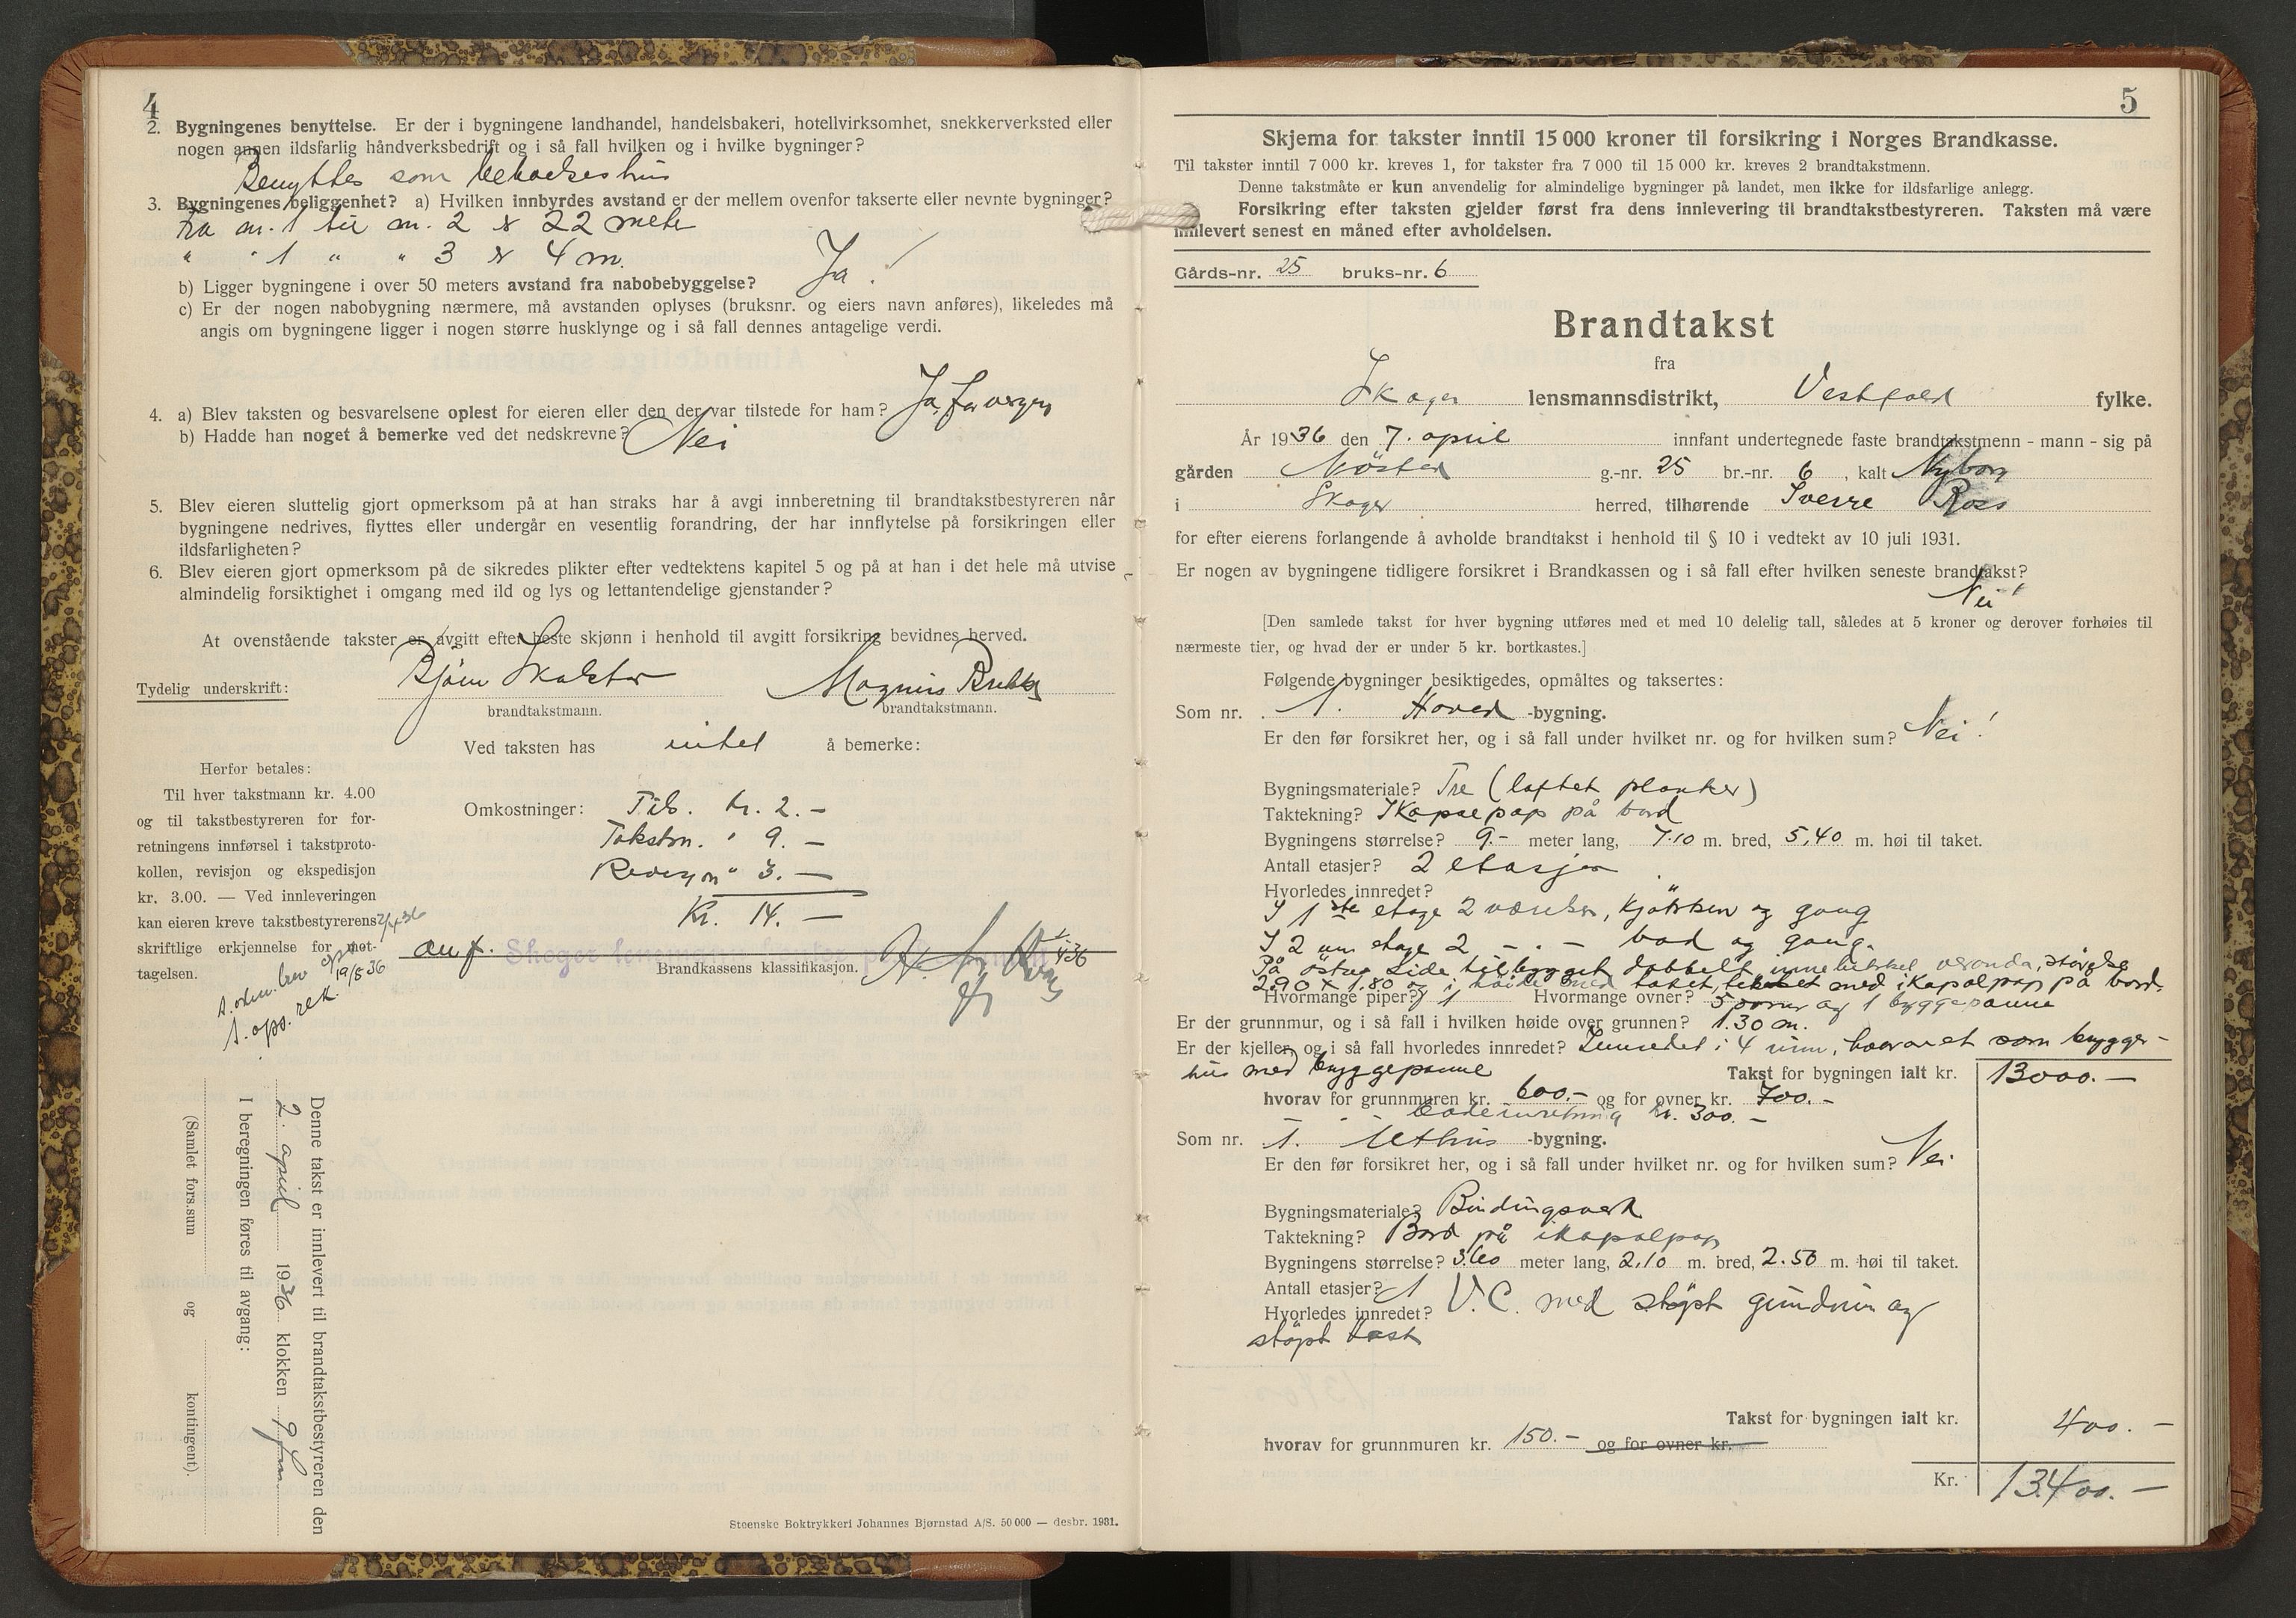 4
2. Bygningenes benyttelse. Er der i bygningene landhandel, handelsbakeri, hotellvirksomhet, snekkerverksted eller
nogen annen ildsfarlig håndverksbedrift og i så fall hvilken og i hvilke bygninger?
Benyttes som beboelseshus
3. Bygningenes beliggenhet? a) Hvilken innbyrdes avstand er der mellem ovenfor takserte eller nevnte bygninger?
Fra nr. 1 til nr. 2 er 22 meter
" " 1 " " 3 er 4 m.
b) Ligger bygningene i over 50 meters avstand fra nabobebyggelse? Ja!
c) Er der nogen nabobygning nærmere, må avstanden oplyses (bruksnr. og eiers navn anføres), likeledes må
angis om bygningene ligger i nogen større husklynge og i så fall dennes antagelige verdi.
4. a) Blev taksten og besvarelsene oplest for eieren eller den der var tilstede for ham? Ja,
b) Hadde han noget å bemerke ved det nedskrevne? Nei
5. Blev eieren sluttelig gjort opmerksom på at han straks har å avgi innberetning til brandtakstbestyreren når
bygningene nedrives, flyttes eller undergår en vesentlig forandring, der har innflytelse på forsikringen eller
ildsfarligheten?
6. Blev eieren gjort opmerksom på de sikredes plikter efter vedtektens kapitel 5 og på at han i det hele må utvise
almindelig forsiktighet i omgang med ild og lys og lettantendelige gjenstander?
At ovenstående takster er avgitt efter beste skjønn i henhold til avgitt forsikring bevidnes herved.
Tydelig underskrift: Bjørn Magnus
brandtakstmann. brandtakstmann.
Ved taksten has intet å bemerke:
Herfor betales:
Til hver takstmann kr. 4.00
og til takstbestyreren for for-
retningens innførsel i takstproto-
kollen, revisjon og ekspedisjon
kr. 3.00. — Ved innleveringen
kan eieren kreve takstbestyrerens
skriftlige erkjennelse for mot-
tagelsen.
Omkostninger: Tils. kr. 2.-
Takstm. " 9.-
Revisjon " 3.-
Kr. 14.-
2/4 36
Skoger lensmann
Brandkassens klassifikasjon.
19/5 36
Denne takst er innlevert til brandtakstbestyreren den
2. april 1936 klokken 9 fm.
I beregningen føres til avgang:
(Samlet fors.sum og kontingent).
Steenske Boktrykkeri Johannes Bjørnstad A/S. 50 000 — desbr. 1931.
5
Skjema for takster inntil 15 000 kroner til forsikring i Norges Brandkasse.
Til takster inntil 7 000 kr. kreves 1, for takster fra 7 000 til 15 000 kr. kreves 2 brandtakstmenn.
Denne takstmåte er kun anvendelig for almindelige bygninger på landet, men ikke for ildsfarlige anlegg.
Forsikring efter taksten gjelder først fra dens innlevering til brandtakstbestyreren. Taksten må være
innlevert senest en måned efter avholdelsen.
Gårds-nr. 25 bruks-nr. 6
Brandtakst
fra
Skoger lensmannsdistrikt, Vestfold fylke.
År 1936 den 7. april innfant undertegnede faste brandtakstmenn - mann - sig på
gården g.-nr. 25 br.-nr. 6, kalt Nyborg
i Skoger herred, tilhørende Sverre Roos
for efter eierens forlangende å avholde brandtakst i henhold til § 10 i vedtekt av 10 juli 1931.
Er nogen av bygningene tidligere forsikret i Brandkassen og i så fall efter hvilken seneste brandtakst?
Nei
[Den samlede takst for hver bygning utføres med et med 10 delelig tall, således at 5 kroner og derover forhøies til
nærmeste tier, og hvad der er under 5 kr. bortkastes.]
Følgende bygninger besiktigedes, opmåltes og taksertes:
Som nr. 1. Hoved -bygning.
Er den før forsikret her, og i så fall under hvilket nr. og for hvilken sum? Nei!
Bygningsmateriale? Tre (laftet planker)
Taktekning? Skapalpap på bord
Bygningens størrelse? 9.- meter lang, 7.10 m. bred, 5,40 m. høi til taket.
Antall etasjer? 2 etasjer
Hvorledes innredet?
I 1ste etage 2 værelser, kjøkken og gang
I 2nen etage 2 - . - bad og gang.
På østre side tilbygget dobbelt veranda, størrelse
2.90 x 1.80 og i høide med taket, tekket med skapalpap på bord.
Hvormange piper? 1 Hvormange ovner? 5 ovner og 1 bryggepanne
Er der grunnmur, og i så fall i hvilken høide over grunnen? 1.30 m.
Er der kjeller, og i så fall hvorledes innredet? Innredet i 4 rum, hvorav et som brygger-
hus med bryggepanne Takst for bygningen ialt kr. 13000.-
hvorav for grunnmuren kr. 600.- og for ovner kr. 700.-
- " - badeinretning kr. 300.-
Som nr. 1. Uthus -bygning.
Er den før forsikret her, og i så fall under hvilket nr. og for hvilken sum? Nei
Bygningsmateriale? Bindingsverk
Taktekning? Bord på skapalpap
Bygningens størrelse? 3.60 meter lang, 2.10 m. bred, 2.50 m. høi til taket.
Antall etasjer? 1
Hvorledes innredet? V.C. med støpt grundmur og
støpt
Takst for bygningen ialt kr. 400.-
hvorav for grunnmuren kr. 150.- og for ovner kr.
Kr. 13400.-